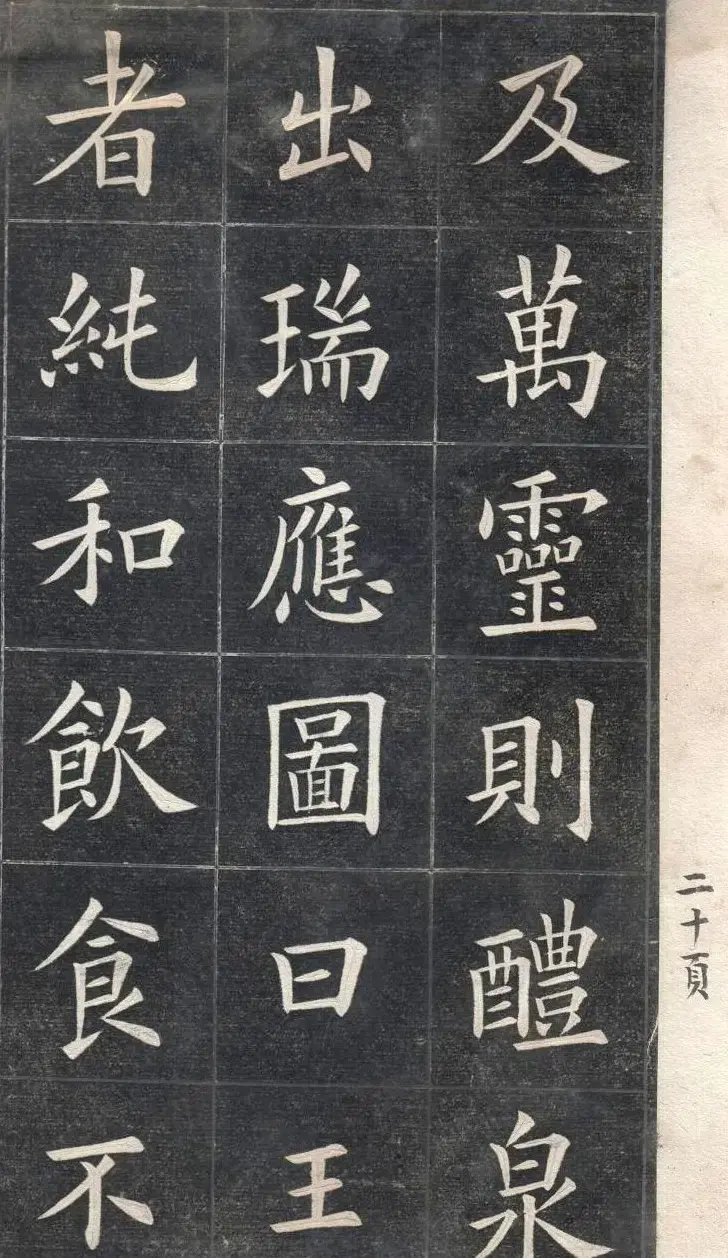 二十頁
及萬靈則醴泉
出瑞應圖曰王
者純和飲食不